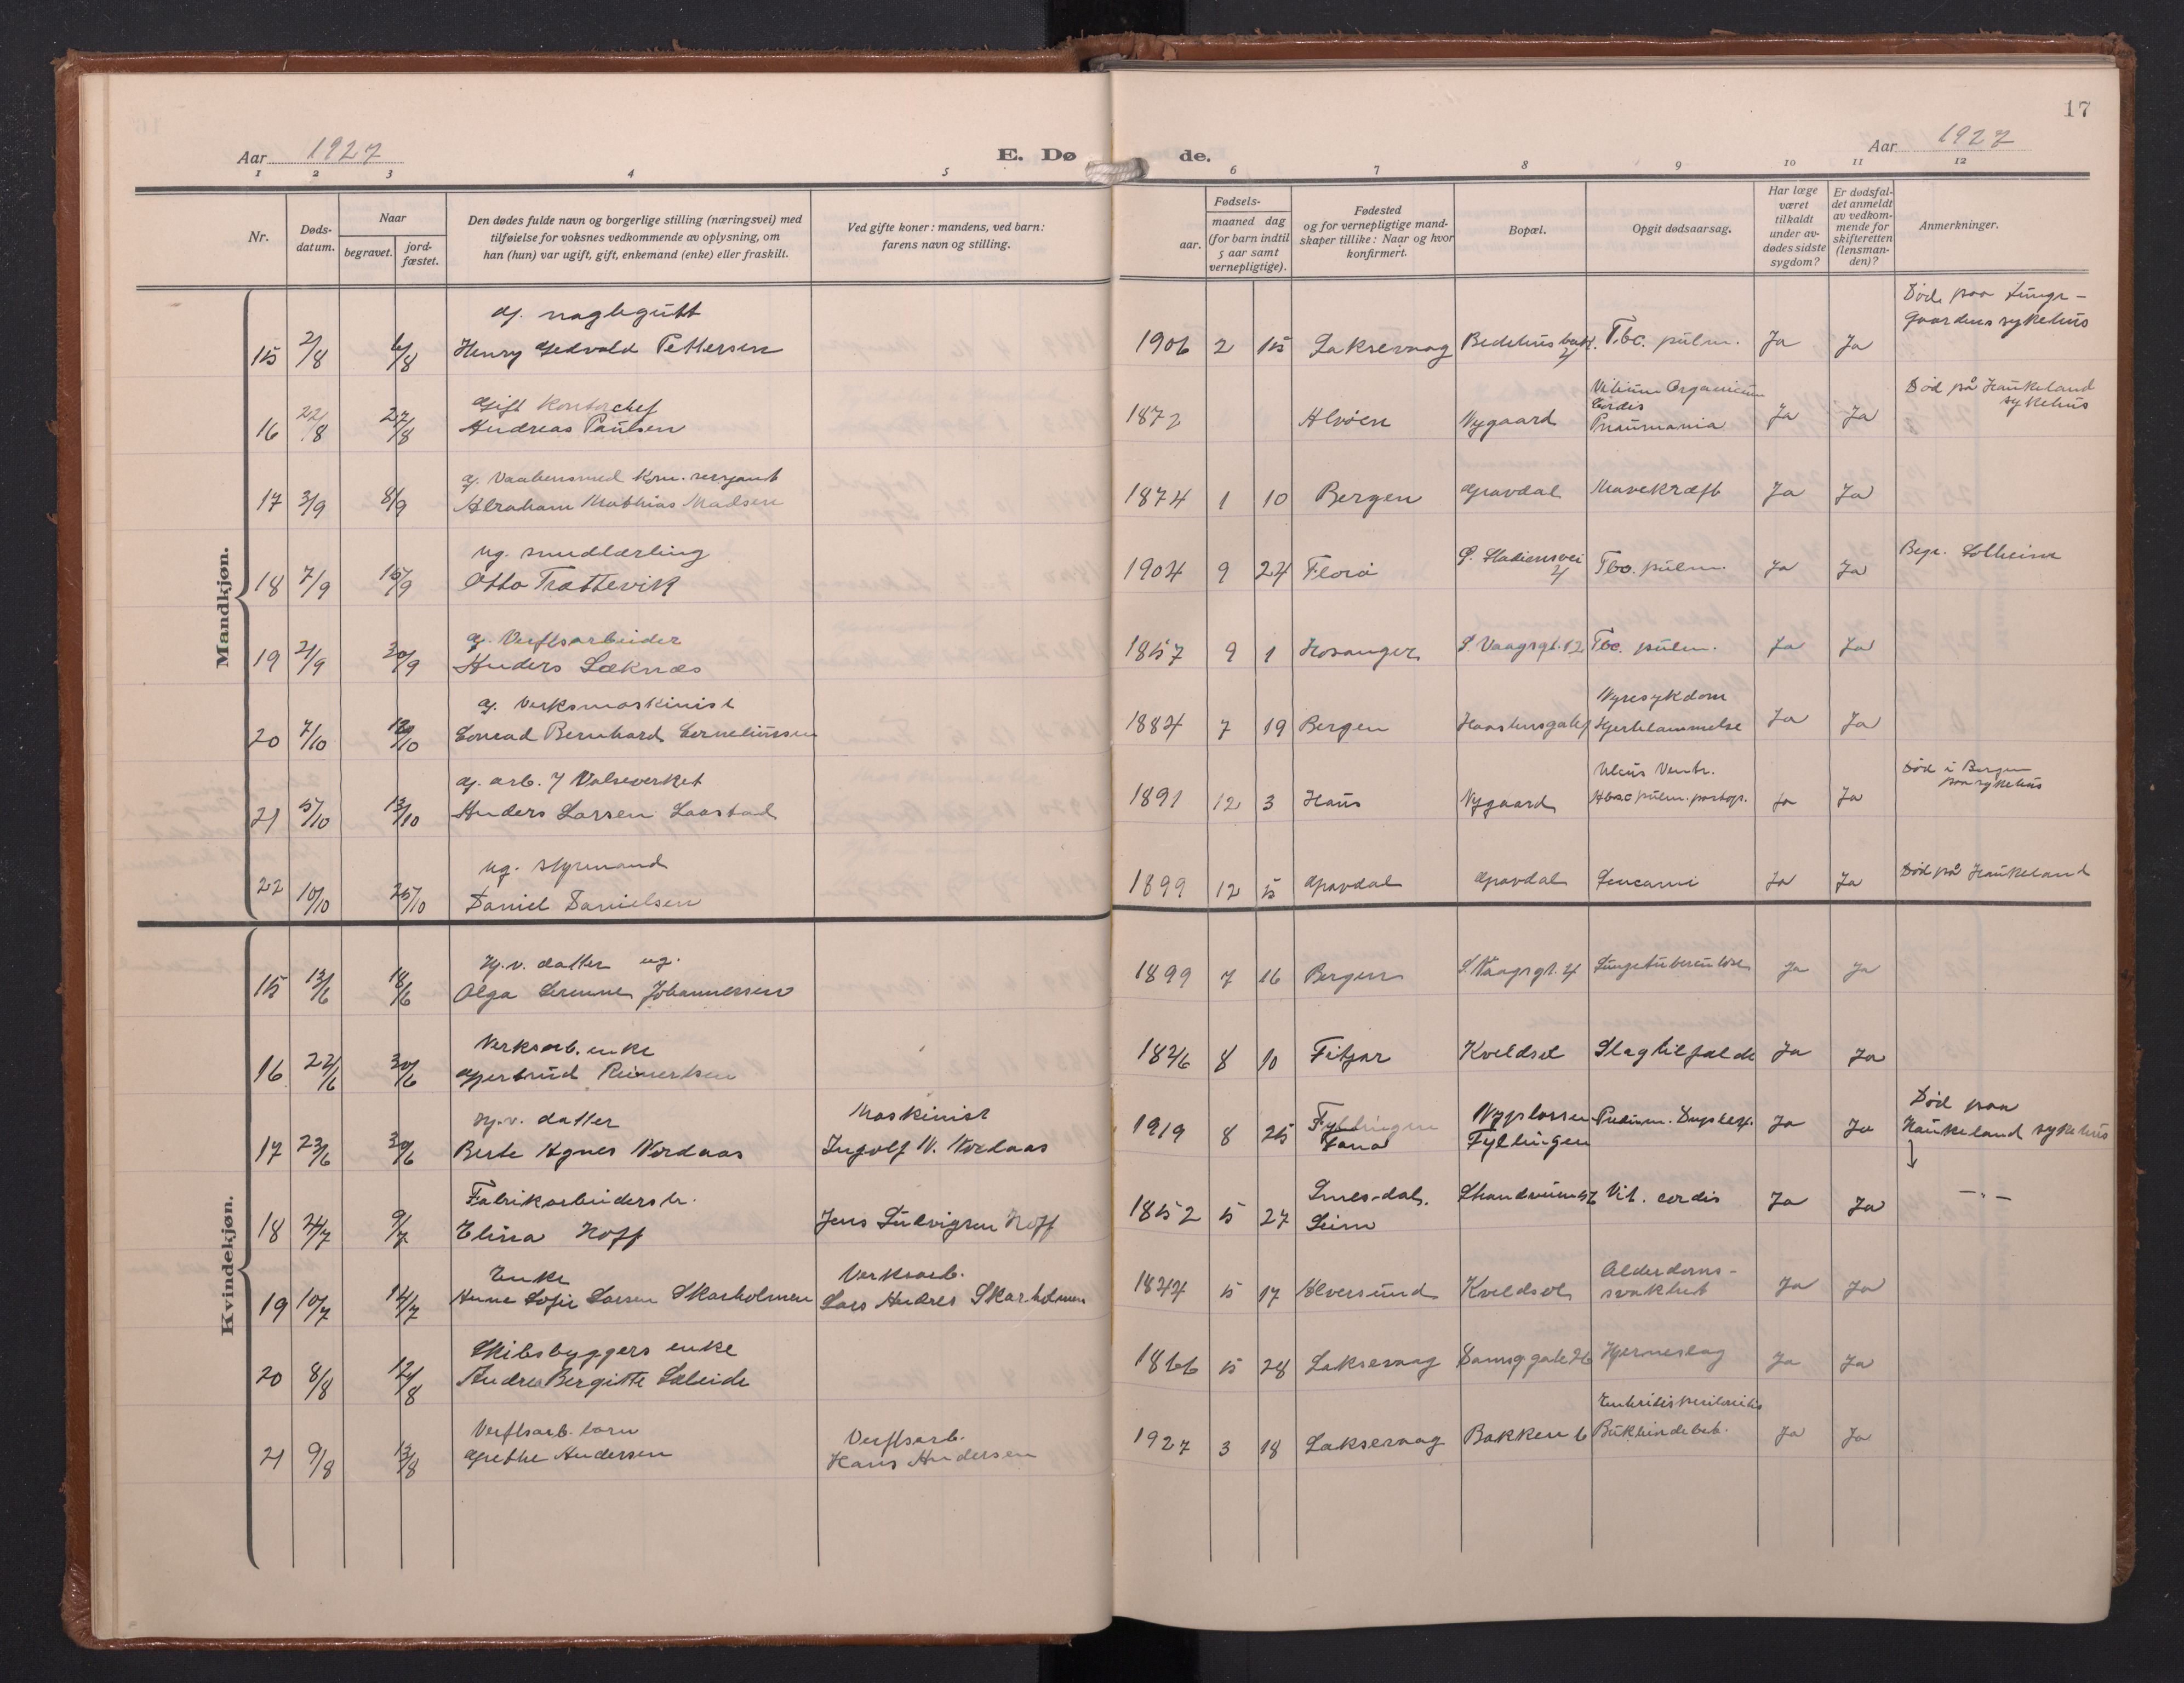 17
Aar 1927
E. Dø de.
Aar 1927
1 2 3 4 5 6 7 8 9 10 11 12
Nr.
Døds-
datum.
Naar
begravet.
jord-
fæstet.
Den dødes fulde navn og borgerlige stilling (næringsvei) med
tilføielse for voksnes vedkommende av oplysning, om
han (hun) var ugift, gift, enkemand (enke) eller fraskilt.
Ved gifte koner: mandens, ved barn:
farens navn og stilling.
Fødsels-
aar.
maaned dag
(for barn indtil
5 aar samt
vernepligtige).
Fødested
og for vernepligtige mand-
skaper tillike: Naar og hvor
konfirmert.
Bopæl.
Opgit dødsaarsag.
Har læge
været
tilkaldt
under av-
dødes sidste
sygdom?
Er dødsfal-
det anmeldt
av vedkom-
mende for
skifteretten
(lensman-
den)?
Anmerkninger.
Mandkjøn.
g. naglegutt Død paa Lunge-
gaardens sykehus
15 2/8 6/8 Henry Gedvald Pettersen 1906 2 15 Laksevaag Tbc. pulm. Ja Ja
Gift Kontorchef Vitium Organicum Død på Haukeland
Cordis sykehus
16 22/8 27/8 Andreas Paulsen 1872 Alvøen Nygaard Pneumania Ja Ja
g. Vaabensmed Kom. sersjant
17 3/9 8/9 Abraham Mathias Madsen 1874 1 10 Bergen Gravdal Mavekræft Ja Ja
ug. smedlærling
18 7/9 15/9 Otto Trættevik 1904 9 24 Florø Tbc. pulm. Ja Ja Begr. Solheim
g. Verftsarbeider
19 21/9 30/9 Anders Læknæs 1857 9 1 Hosanger S. Vaagsgt. 12 Tbc. pulm. Ja Ja
g. Verksmaskinist Nyresykdom
20 7/10 Conrad Bernhard Corneliussen 1884 7 19 Bergen Hjertelammelse Ja Ja
g. arb. Valseverket Ulcus Ventr. Død i Bergen
paa sykehus
21 5/10 13/10 Anders Larsen Laastad 1891 12 3 Haus Nygaard Ja Ja
ug. styrmand
22 10/10 25/10 Daniel Danielsen 1899 12 5 Gravdal Gravdal Leucami Ja Ja Død på Haukeland
Kvindekjøn.
Hj.v. datter ug.
15 13/6 18/6 Olga Johannessen 1899 7 16 Bergen S. Vaagsgt. 4 Lungetuberculose Ja Ja
Verksarb. enke
16 22/6 30/6 Gjertrud Reinertsen 1826 8 10 Fitjar Kveldsol Slagtilfælde Ja Ja
Hj.v. datter Maskinist Død paa
17 23/6 30/6 Berte Agnes Nordaas Ingolf N. Nordaas 1919 8 25 Fyllingen Ja Ja Haukeland sykehus
Fana Fyllingen
Fabrikarbeiders h.
18 9/7 Elina Hoff Jens Ludvigsen Hoff 1852 5 27 Vit. cordis Ja Ja —"—
Seim
Enke Verksarb. Alderdoms-
19 10/7 14/7 Anne Sofie Larsen Skarholmen Lars Andres Skarholmen 1844 5 17 Alversund Kveldsol svakhet Ja Ja
Skibsbyggers enke
20 8/8 12/8 Andrea Bergitte Sæleide 1866 5 28 Laksevaag Damsg.gate 26 Hjerneslag Ja Ja
Verftsarb. barn Verftsarb.
21 9/8 13/8 Grethe Andersen Hans Andersen 1927 3 18 Laksevaag Bakken 6 Bukhindebet. Ja Ja